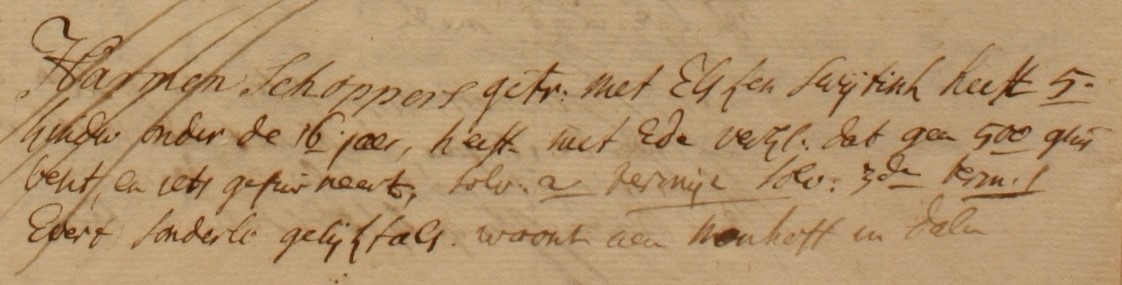 Harmen Schoppers getr. met Elsjen Swijtink heeft 5
kinder onder de 16 jaer, heeft met Ede verkl. dat geen 500 guld
besit, en iets gefurneert, solv. 2 termijn solv. 3de term.
Evert Sonderlo gelijkfals. woont aen in Dalen